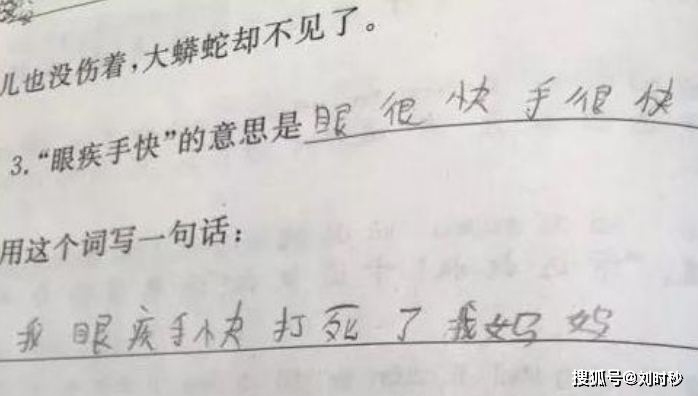 儿也没伤着，大蟒蛇却不见了。
3.“眼疾手快”的意思是眼很快手很快
用这个词写一句话：
我眼疾手快打死了我妈妈
搜狐号@刘时秒